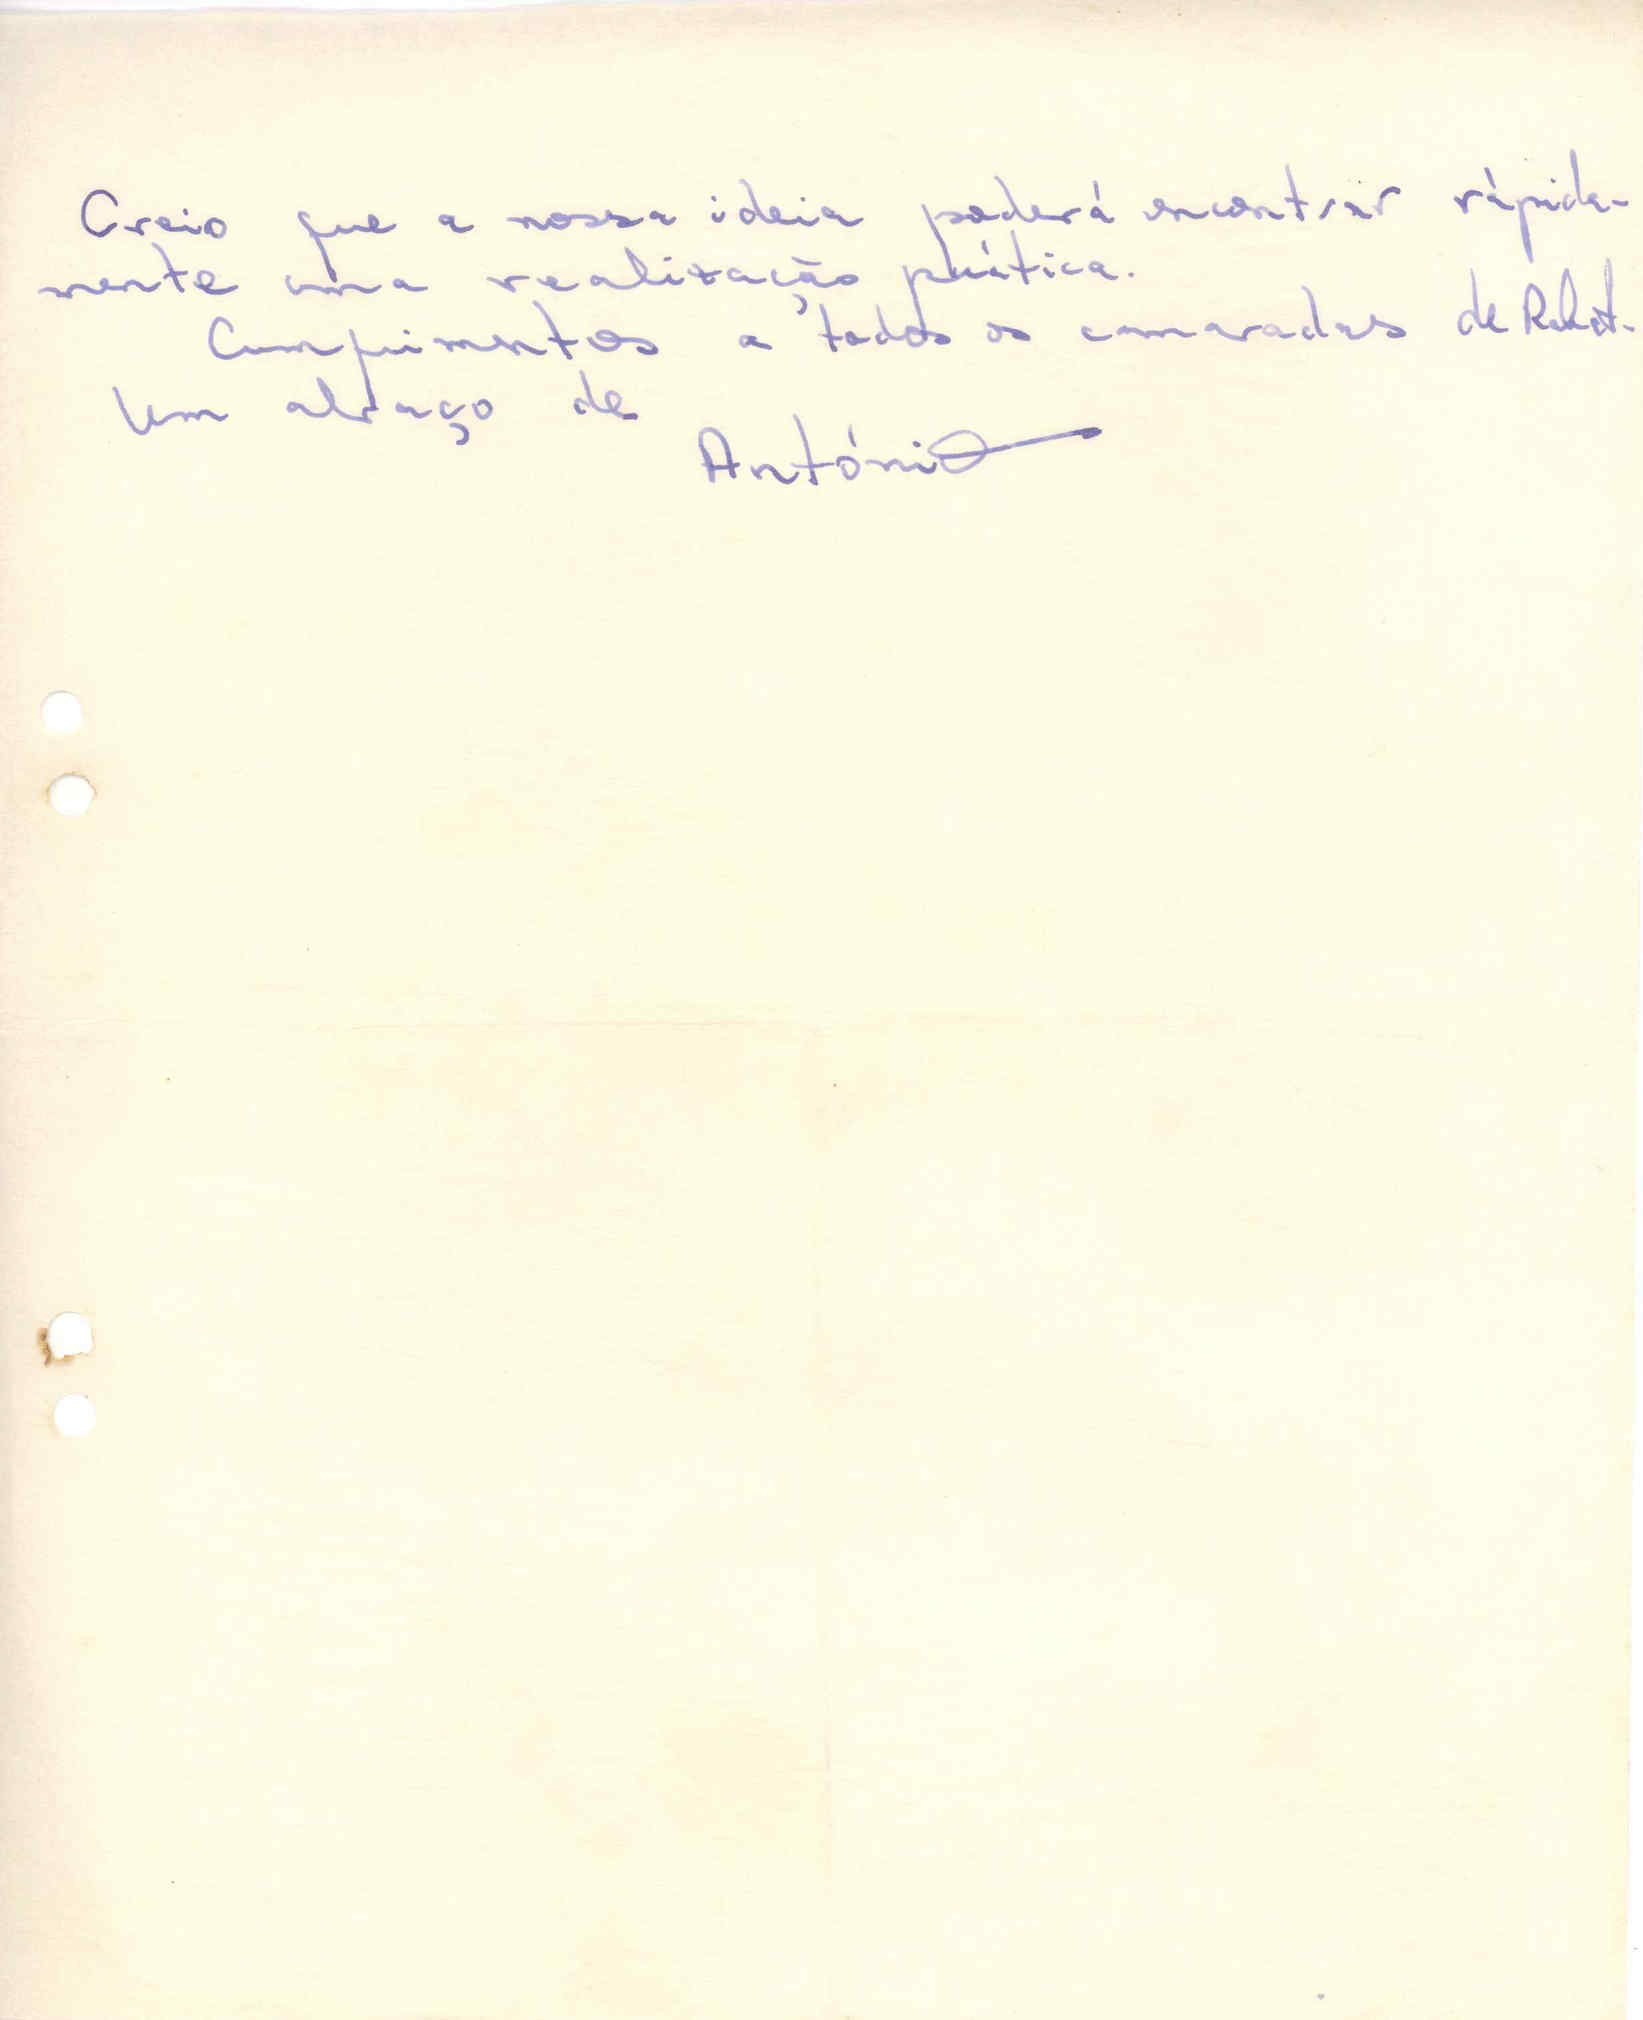 Creio que a nossa ideia poderá encontrar rápida-
mente uma realização prática.
Cumprimentos a todos os camaradas de Rabat.
Um abraço de
António